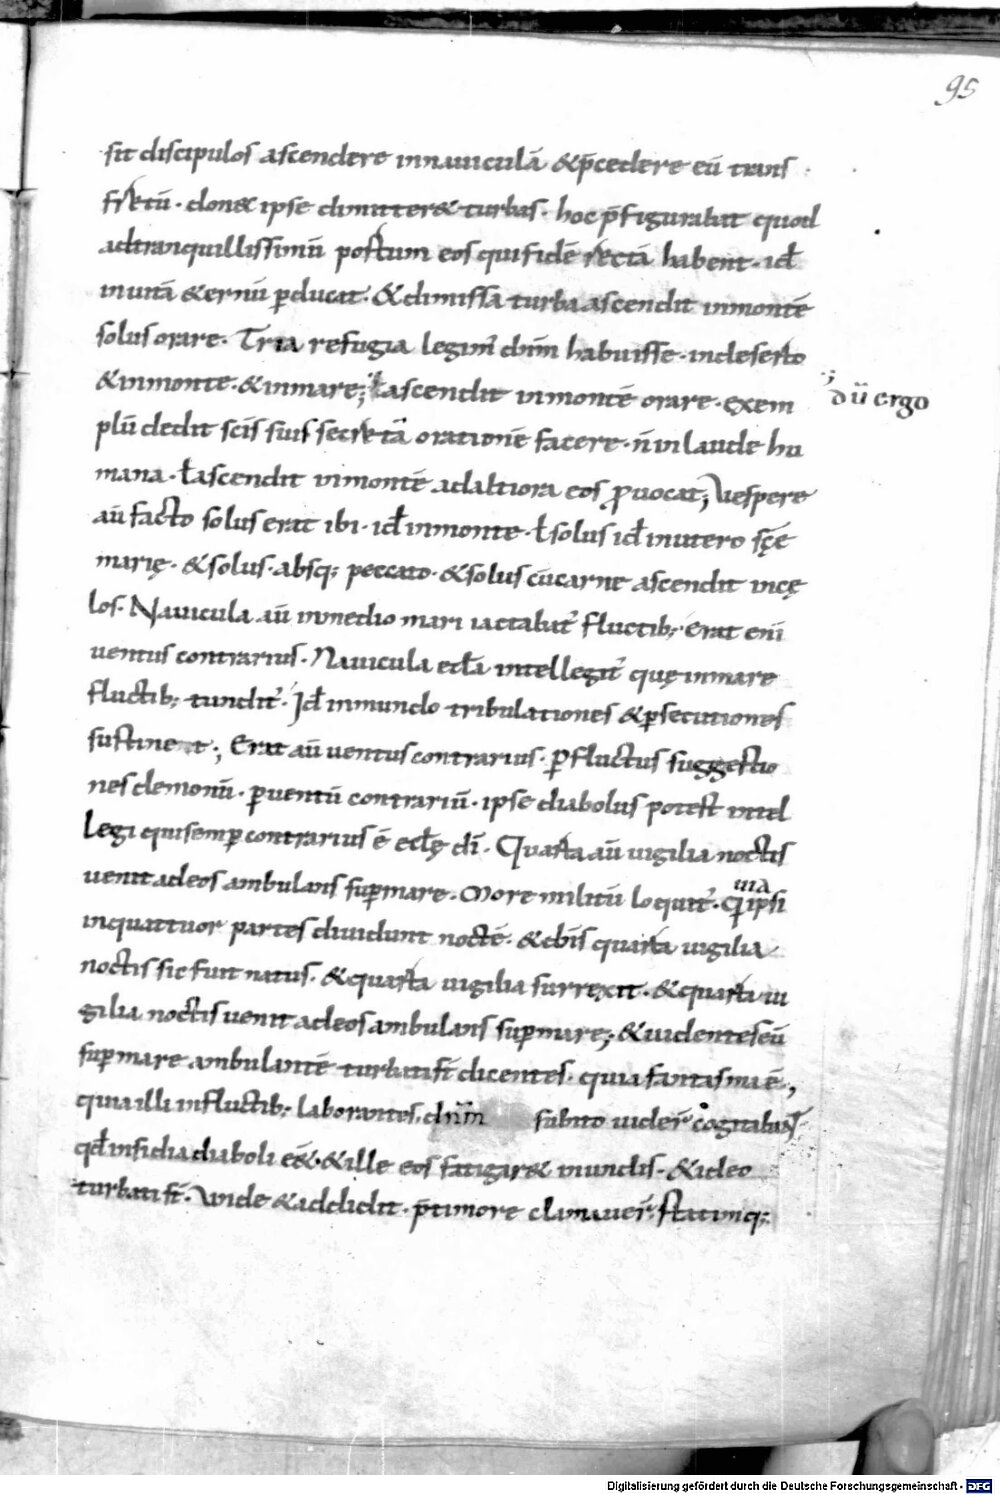 95
sit discipulos ascendere innauiculā &p̄cedere eū trans
fretū · donec ipse dimitter& turbas · hoc p̄figurabat quod
adtranquillissimū portum eos quifidē rectā habent · id÷
inuitā &ernū ꝑducat · &dimissa turba ascendit inmontē
solus orare · Tria refugia legim̄ dn̄m habuisse · indeserto
&inmonte · &inmare; ł ascendit inmontē orare · exem
;
dū ergo
plū dedit scīs suis secretā orationē facere · n̄ inlaude hu
mana · ł ascendit inmontē adaltiora eos ꝓuocat; Vespere
aū facto solus erat ibi · id÷ inmonte · ł solus id÷ inutero scę
marię · &solus · absq; peccato · &solus cūcarne ascendit incę
los · Nauicula aū inmedio mari iactabat᷑ fluctib; · erat eni
uentus contrarius · Nauicula eccła intellegit᷑ quę inmare
fluctib; tundit᷑ · Id÷ inmundo tribulationes &ꝑsecutiones
sustinent; Erat aū uentus contrarius · ꝑfluctus suggestio
nes demonū · ꝑuentū contrariū · ipse diabolus potest intel
legi quisemꝑ contrarius ē eccłę dī · Quarta aū uigilia noctis
uenit adeos ambulans suꝑmare · more militū loquit᷑ · q̄ ipsi
inquattuor partes diuidunt noctē · &dn̄s quarta uigilia
noctis sic fuit natus · &quarta uigilia surrexit · &quarta ui
gilia noctis uenit adeos ambulans suꝑmare; &uidentes eū
suꝑmare ambulantē turbati st̄ dicentes · quia fantasma ē,
quia illi influctib; laborantes, dn̄m subito uider̄ cogitabant ·
qd̄ insidia diaboli e&̄ · &ille eos fatigar& inundis · &ideo
turbati st̄ · Vnde &addidit · p̄timore clamauer̄ · statimq;